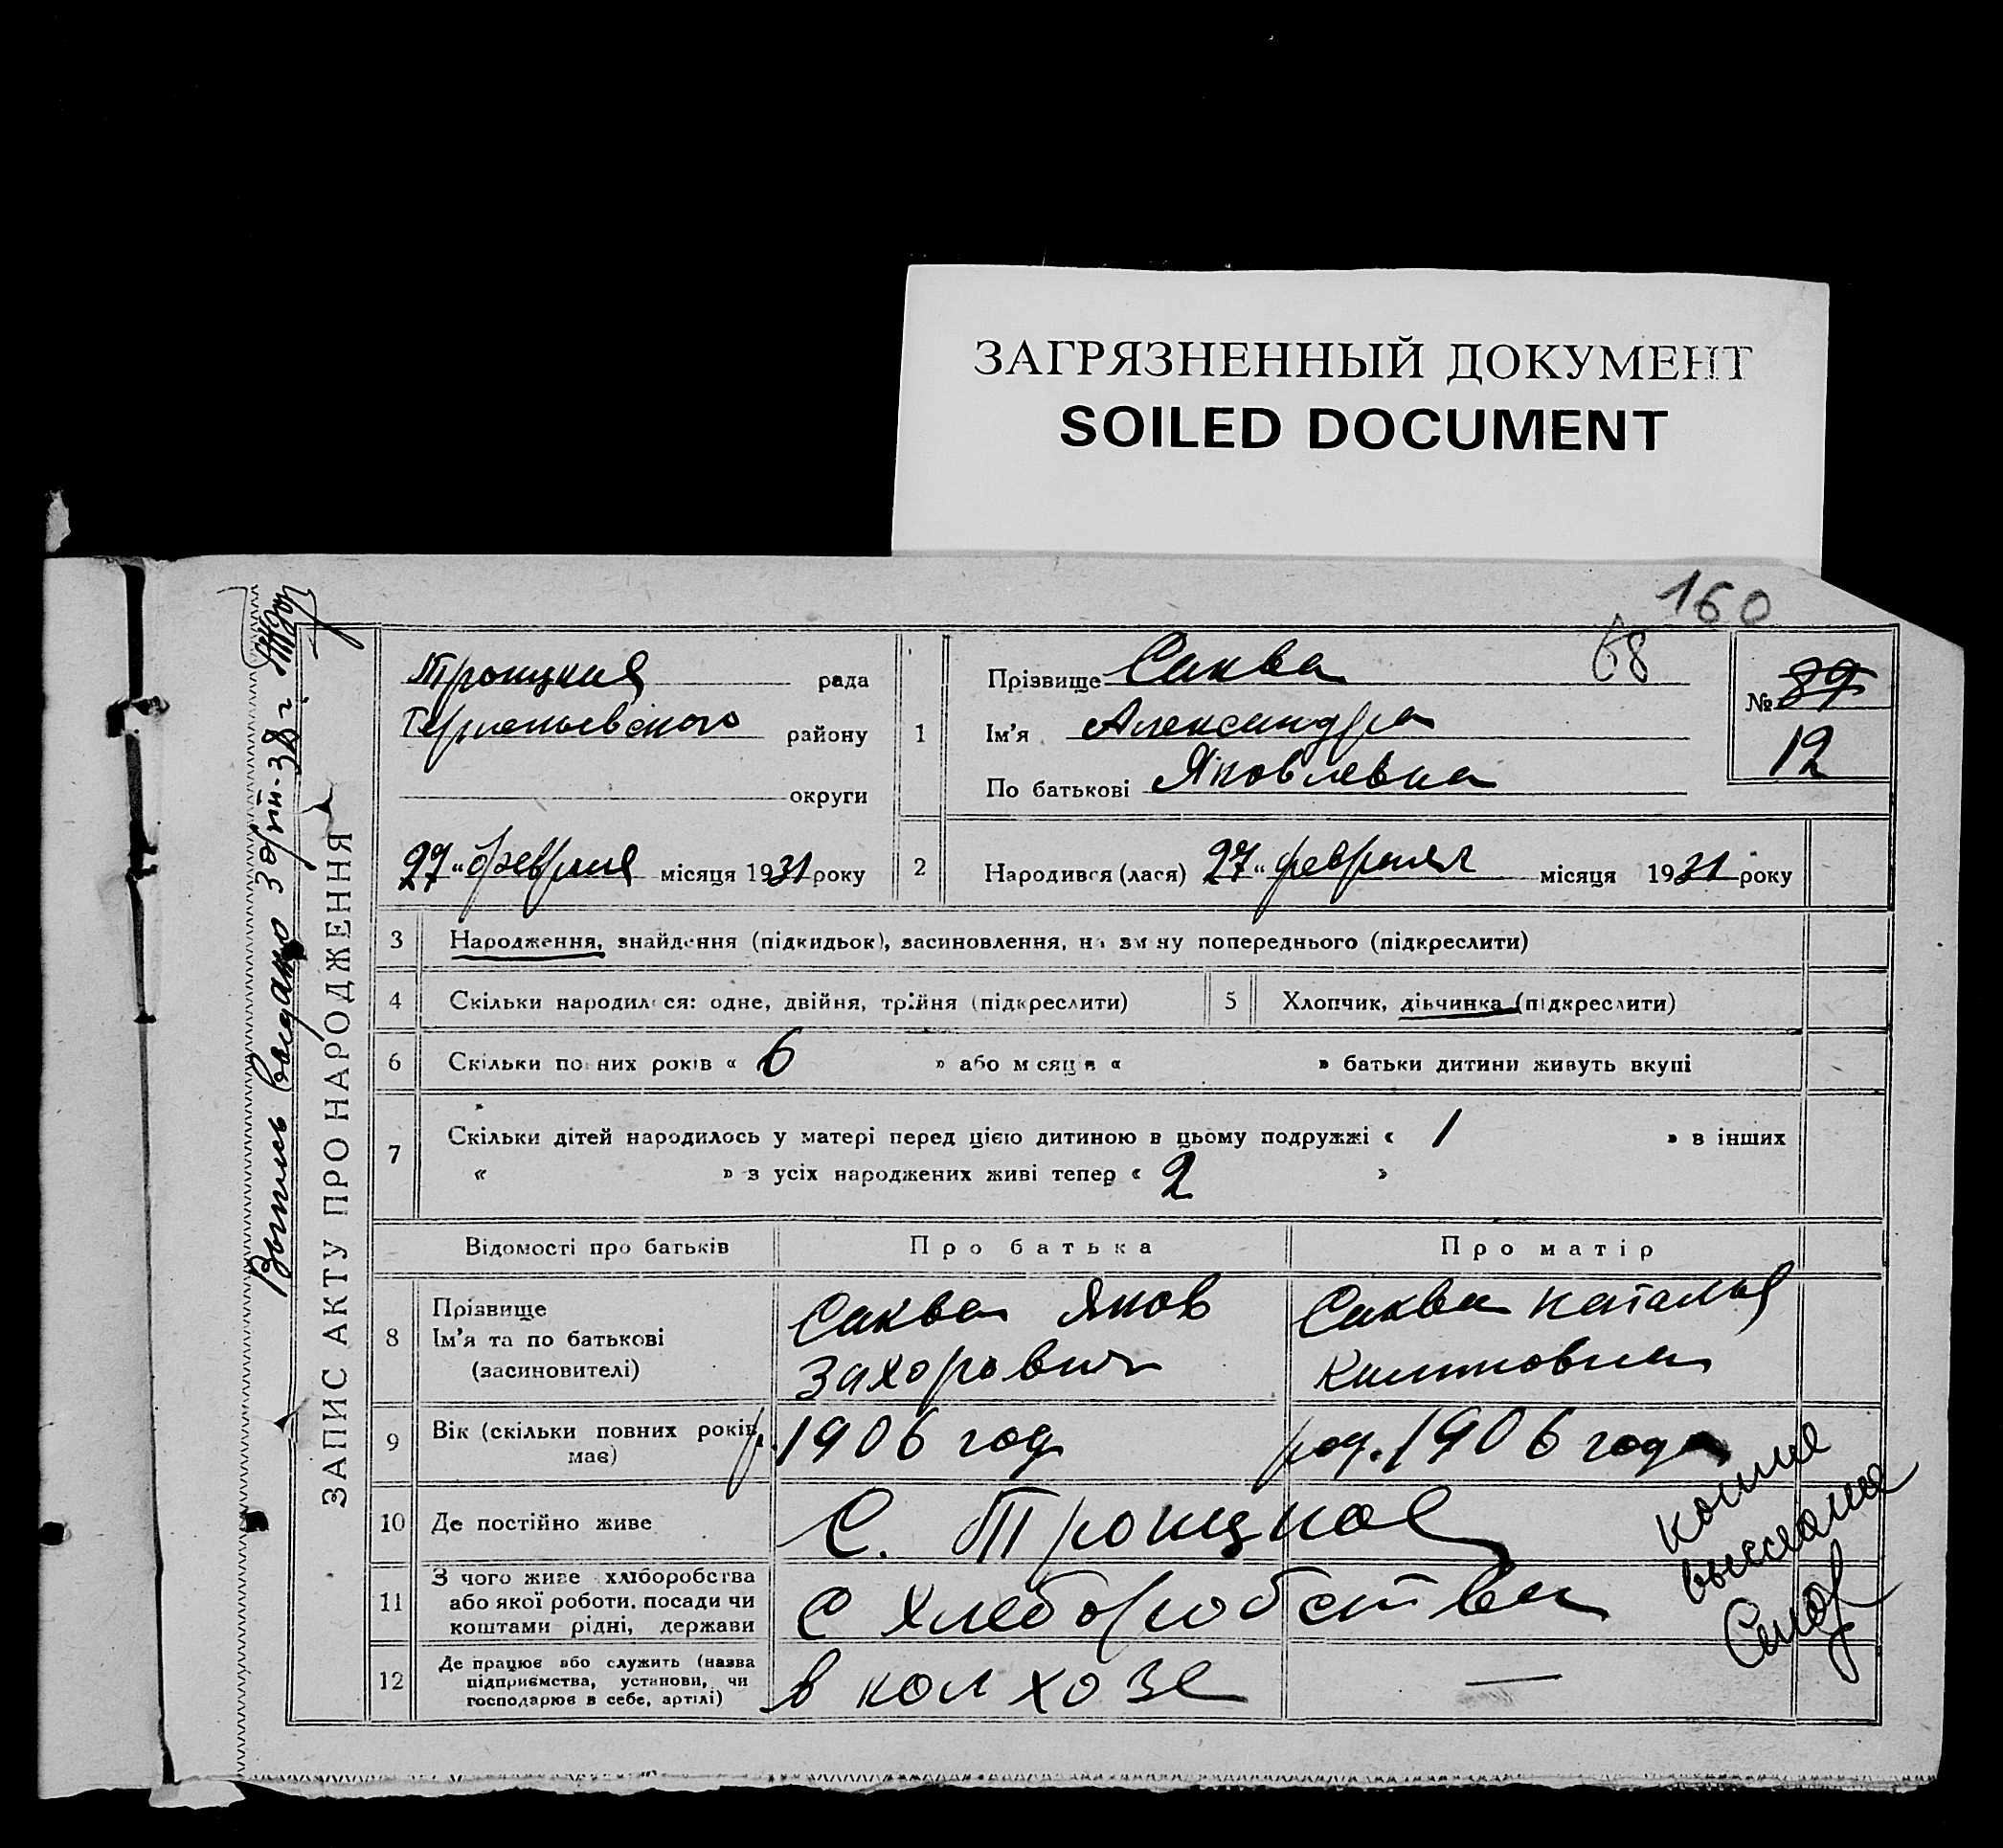 ЗАГРЯЗНЕННЫЙ ДОКУМЕНТ
SOILED DOCUMENT
160
68
ЗАПИС АКТУ ПРО НАРОДЖЕННЯ
Выпись выдано
Троицкая рада
району
округи
27 " февраля місяця 1931 року
1
Прізвище Саква
Ім'я Александра
По батькові Яковлевна
№ 89
12
2 Народився (лася) 27 " февраля місяця 1931 року
3 Народження, знайдення (підкидьок), засиновлення, на зміну попереднього (підкреслити)
4 Скільки народилося: одне, двійня, трійня (підкреслити)
5 Хлопчик, дівчинка (підкреслити)
6 Скільки повних років « 6 » або місяців « » батьки дитини живуть вкупі
7 Скільки дітей народилось у матері перед цією дитиною в цьому подружжі « 1 » в інших
« » з усіх народжених живі тепер « 2 »
Відомості про батьків Про батька Про матір
8 Прізвище
Ім'я та по батькові
(засиновителі)
Саква Яков
Захорович
Саква Наталья
9 Вік (скільки повних років
має)
р. 1906 год
род. 1906 года
10 Де постійно живе С. Троицкое
11 З чого живе хліборобства
або якої роботи, посади чи
коштами рідні, держави
С хлеборобства
12 Де працює або служить (назва
підприємства, установи, чи
господарює в себе, артілі)
в колхозе —
копия
выслана